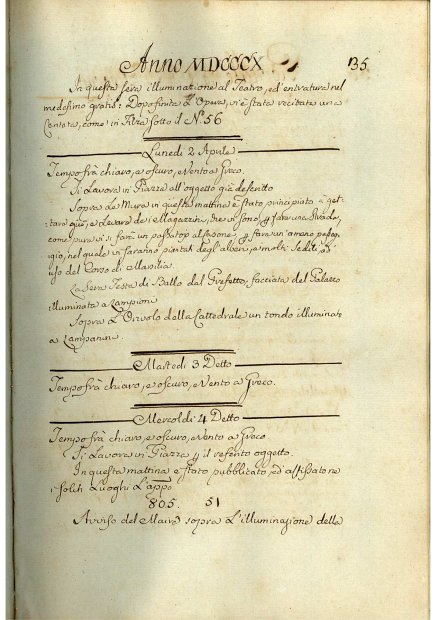 Anno MDCCCX. 135
In questa sera illuminazione al Teatro, ed entratura nel
medesimo gratis: Dopo finita L'Opera, vi è stata recitata una
Cantata, come in Filza sotto il N.º 56
Lunedì 2 Aprile
Tempo frà chiaro, e oscuro, e Vento a Greco.
Si Lavora in Piazza all'oggetto già descritto
Sopra Le Mura in questa mattina è stato principiato a get-
tare giù, e Levare dei Magazzini, che vi sono, per fare una Strada,
come pure vi si farà un passeggio, nel quale vi saranno piantati degli alberi, e molti Sedili, a
uso del Corso di Marsilia.
La Sera Festa di Ballo dal Prefetto, facciata del Palazzo
illuminata a Lampioni
Sopra L'Orivolo della Cattedrale un tondo illuminato
a Lampanini.
Martedì 3 Detto
Tempo frà chiaro, e oscuro, e Vento a Greco.
Mercoldì 4 Detto
Tempo frà chiaro, e oscuro, e Vento a Greco
Si Lavora in Piazza per il riferito oggetto.
In questa mattina è stato pubblicato, ed affissato ne
i soliti Luoghi L'appo
805. 51
Avviso del Maire sopra L'illuminazione della